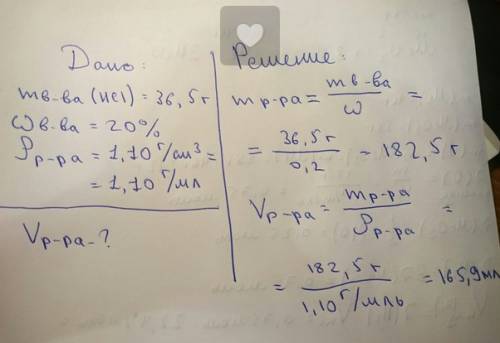 Дано:
mв-ва (HCl) = 36,5 г
ωв-ва = 20%
ρр-ра = 1,10 г/см³ =
= 1,10 г/мл
Vр-ра - ?
Решение:
mр-ра = mв-ва / ω =
= 36,5 г / 0,2 = 182,5 г
Vр-ра = mр-ра / ρр-ра =
= 182,5 г / 1,10 г/мль = 165,9 мл